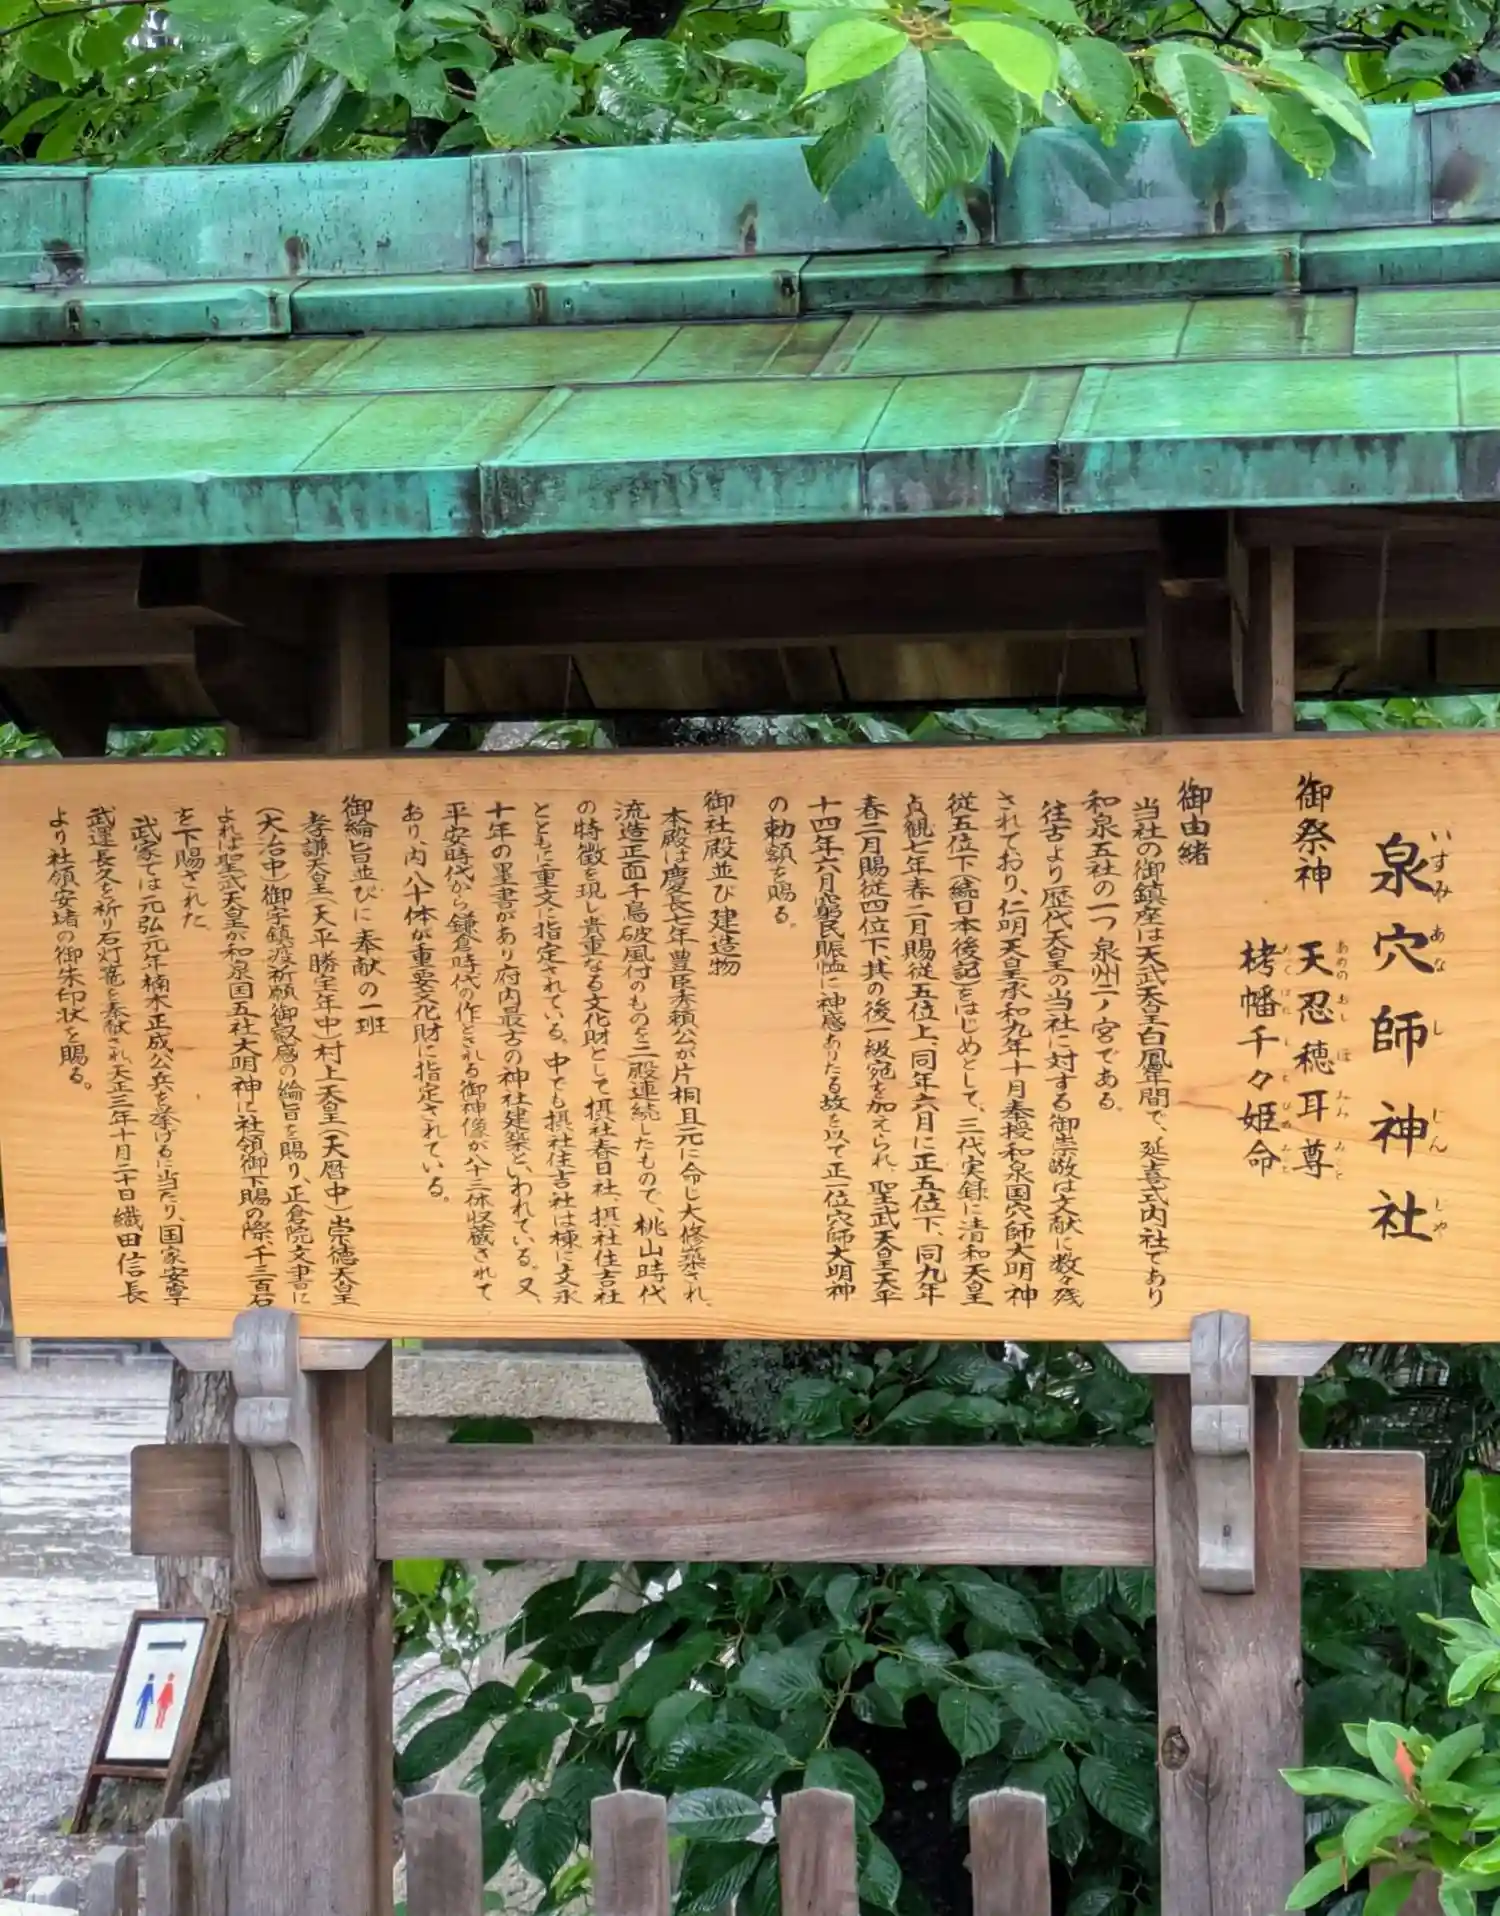 泉穴師神社
いずみあなしじんじゃ
御祭神 天忍穂耳尊
あめのおしほみみみこと
栲幡千々姫命
たくはたちぢひめみこと
御由緒
当社の御鎮座は天武天皇白鳳年間で、延喜式内社であり
和泉五社の一つ泉州二ノ宮である。
往古より歴代天皇の当社に対する御崇敬は文献に数々残
されており、仁明天皇承和九年十月奉授和泉国穴師大明神
従五位下(続日本後記)をはじめとして、三代実録に清和天皇
貞観七年春二月賜従五位上、同年六月に正五位下、同九年
春二月賜従四位下、其の後一級宛を加えられ、聖武天皇天平
十四年六月窮民賑恤に神感ありたる故を以て正一位穴師大明神
の勅額を賜る。
御社殿並び建造物
本殿は慶長七年豊臣秀頼公が片桐且元に命じ大修築され、
流造正面千鳥破風付のものを二殿連続したもので、桃山時代
の特徴を現し貴重なる文化財として摂社春日社、摂社住吉社
とともに重文に指定されている。中でも摂社住吉社は棟に文永
十年の墨書があり府内最古の神社建築といわれている。又、
平安時代から鎌倉時代の作とされる御神像が八十三体収蔵されて
おり、内八十体が重要文化財に指定されている。
御綸旨並びに奉献の一班
孝謙天皇(天平勝宝年中)村上天皇(天暦中)崇徳天皇
(大治中)御宇鎮疫祈願御叡感の綸旨を賜り、正倉院文書に
よれば聖武天皇が和泉国五社大明神に社領御下賜の際、千三百石
を下賜された
武家では元弘元年楠木正成公兵を挙げるに当たり、国家安寧
武運長久を祈り石灯篭を奉献され、天正三年十月二十日織田信長
より社領安堵の御朱印状を賜る。